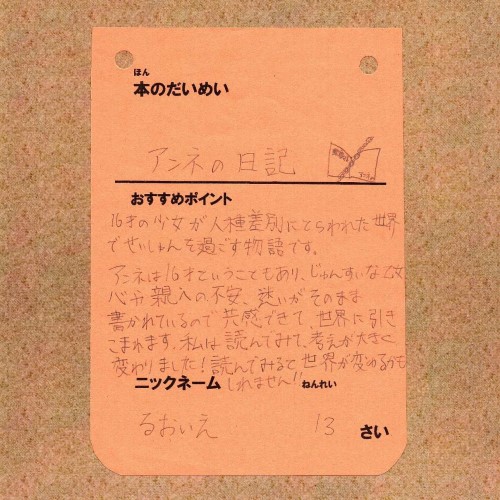 ほん
本のだいめい
アンネの日記
おすすめポイント
16才の少女が人種差別にとらわれた世界
でせいしゅんを過ごす物語です。
アンネは16才ということもあり、じゅんすいな乙女
心や親への不安、迷いがそのまま
書かれているので共感できて、世界に引き
こまれます。私は読んでみて、考えが大きく
変わりました!読んでみると世界が変わるかも
しれません!!
ニックネーム
ねんれい
るおいえ
13 さい